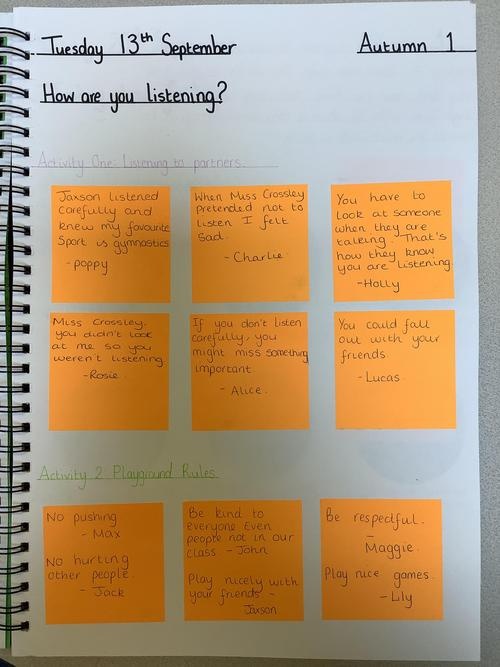 Tuesday 13th September
Autumn 1
How are you listening?
Activity One: Listening to partners.
Jaxson listened
carefully and
knew my favourite
Sport is gymnastics
- Poppy
When Miss Crossley
pretended not to
listen I felt
Sad.
- Charlie
You have to
look at someone
when they are
talking. That's
how they know
you are listening.
- Holly
Miss Crossley,
you didn't look
at me so you
weren't listening.
- Rosie.
If you don't listen
carefully, you
might miss something
important.
- Alice.
You could fall
out with your
friends.
- Lucas
Activity 2 Playground Rules
No pushing
- Max
No hurting
other people.
- Jack
Be kind to
everyone Even
people not in our
class - John
Play nicely with
your friends -
Jaxson
Be respectful.
-
Maggie.
Play nice games.
- Lily